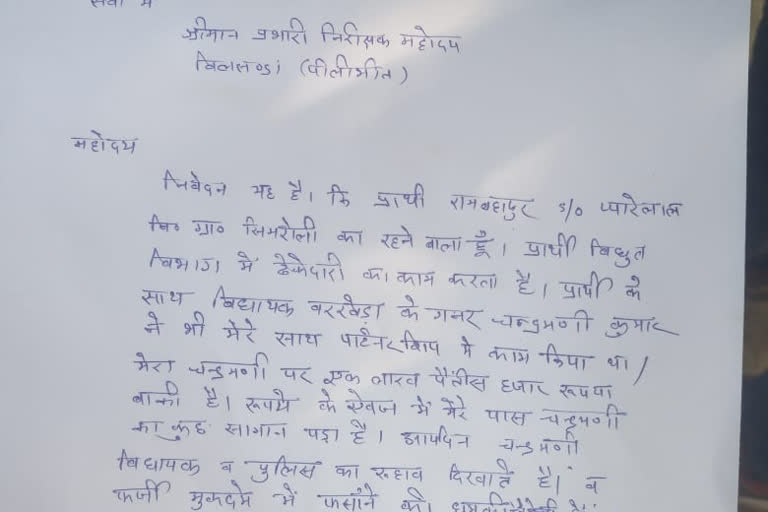 सेवा में
श्रीमान प्रभारी निरीक्षक महोदय
बिलसण्डा (पीलीभीत)
महोदय
निवेदन यह है। कि प्रार्थी रामबहादुर s/o प्यारेलाल
नि० ग्रा० सिमरोली का रहने वाला हूँ। प्रार्थी विधुत
विभाग में ठेकेदारी का काम करता है। प्रार्थी के
साथ विधायक बरखेड़ा के गनर चन्द्रमणी कुमार
ने भी मेरे साथ पार्टनरशिप में काम किया था/
मेरा चन्द्रमणी पर एक लाख पैंतीस हजार रूपया
बाकी है। रूपये के ऐवज में मेरे पास चन्द्रमणी
का कुछ सामान पड़ा है। आयदिन चन्द्रमणी
विधायक व पुलिस का रूहाव दिखाते है। व
फर्जी मुकदमे में फसाने की